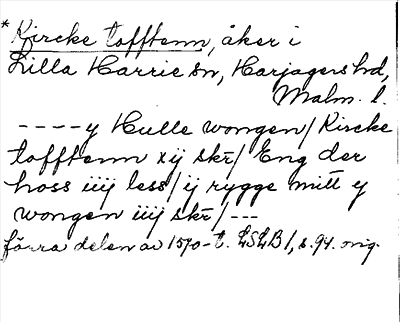 * Kircke tofftenn, åker i
Lilla Harrie sn, Harjagers hd,
Malm. l.
----y Hulle wongen/ Kircke
tofftenn xij skr/ Eng der
hoss iiij less/ ij rygge mitt y
wongen iiij skr/ ---
förra delen av 1570-t. LSLB 1, s. 94. orig.